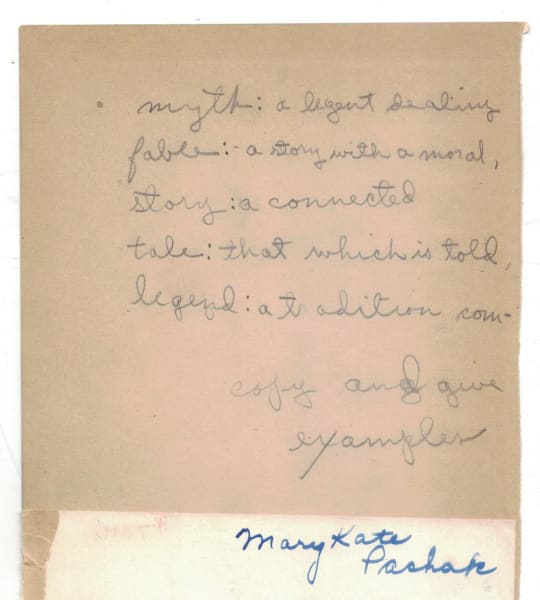 myth: a legent dealing
fable:- a story with a moral,
story: a connected
tale: that which is told,
legend: a tradition com-
copy and give
examples
Mary Kate
Pachak